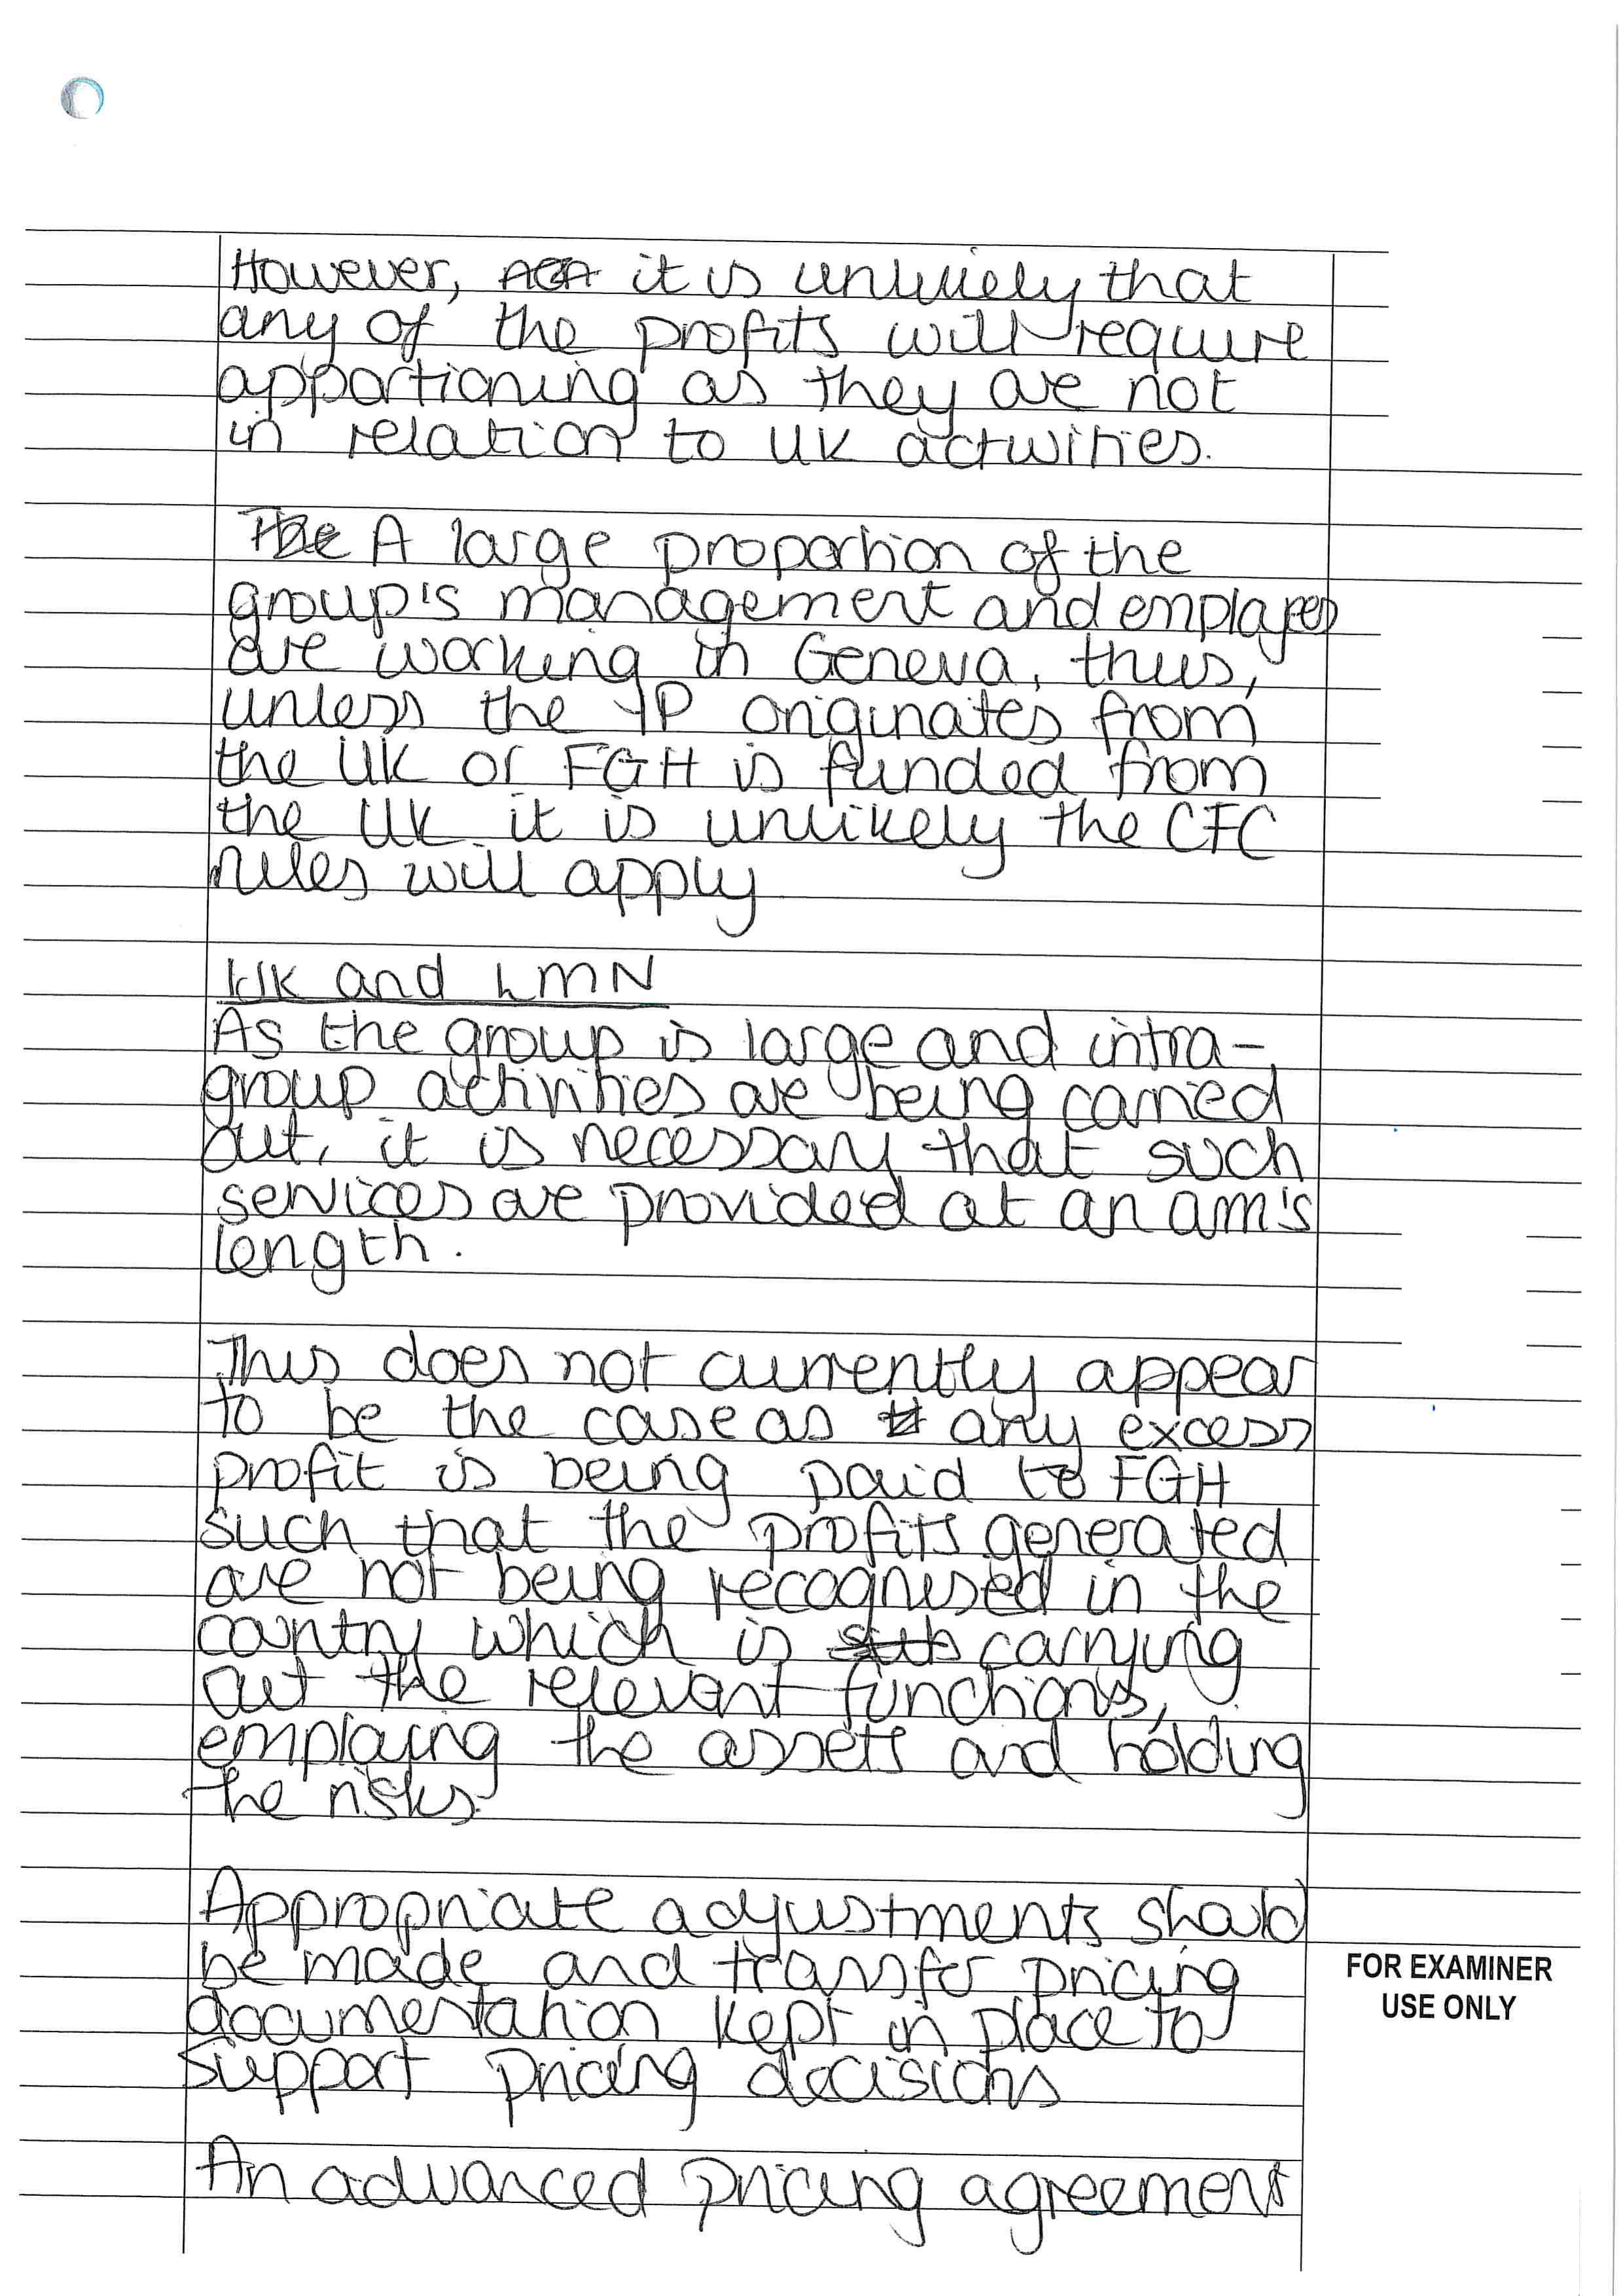 However, it is unlikely that
any of the profits will require
apportioning as they are not
in relation to UK activities.
The A large proportion of the
group's management and employees
are working in Geneva, thus,
unless the IP originates from
the UK or FGH is funded from
the UK it is unlikely the CFC
rules will apply
UK and LMN
As the group is large and intra-
group activities are being carried
out, it is necessary that such
services are provided at an arm's
length.
This does not currently appear
to be the case as any excess
profit is being paid to FGH
such that the profits generated
are not being recognised in the
country which is carrying
out the relevant functions,
employing the assets and holding
the risks.
Appropriate adjustments should
be made and transfer pricing
documentation kept in place to
support pricing decisions
FOR EXAMINER
USE ONLY
An advanced pricing agreement